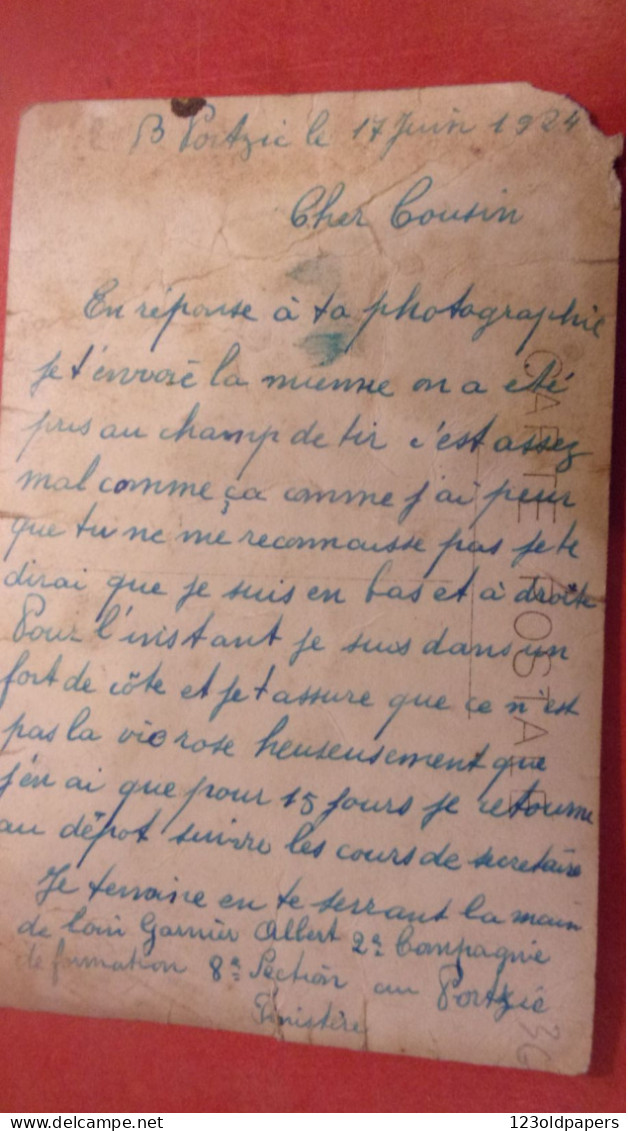 B Portzic le 17 Juin 1924
Cher Cousin
En réponse à ta photographie
je t'envoie la mienne on a été
pris au champ de tir c'est assez
mal comme ça comme j'ai peur
que tu ne me reconnaisse pas je te
dirai que je suis en bas et à droite
Pour l'instant je suis dans un
fort de côte et je t'assure que ce n'est
pas la vie rose heureusement que
j'en ai que pour 15 jours je retourne
au dépot suivre les cours de secretaire
Je termine en te serrant la main
de loin Garnier Albert 2e Compagnie
de formation 8e Section au Portzic
Finistère
CARTE POSTALE
36
123oldpapers